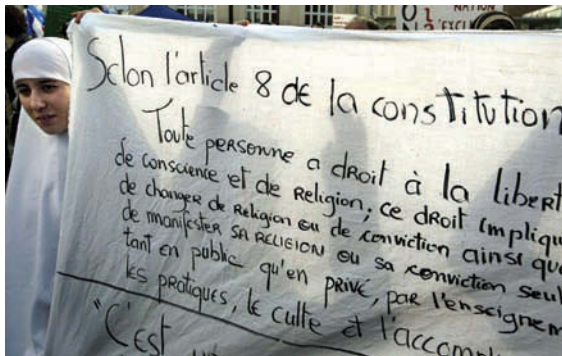 NATION
L'EXCLU
Selon l'article 8 de la constitution
Toute personne a droit à la libert
de conscience et de Religion; ce droit impliqu
de changer de Religion ou de conviction ainsi que
de manifester SA RELIGION ou sa conviction seul
tant en public qu'en privé, par l'enseignem
les pratiques, le culte et l'accompl
"C'est